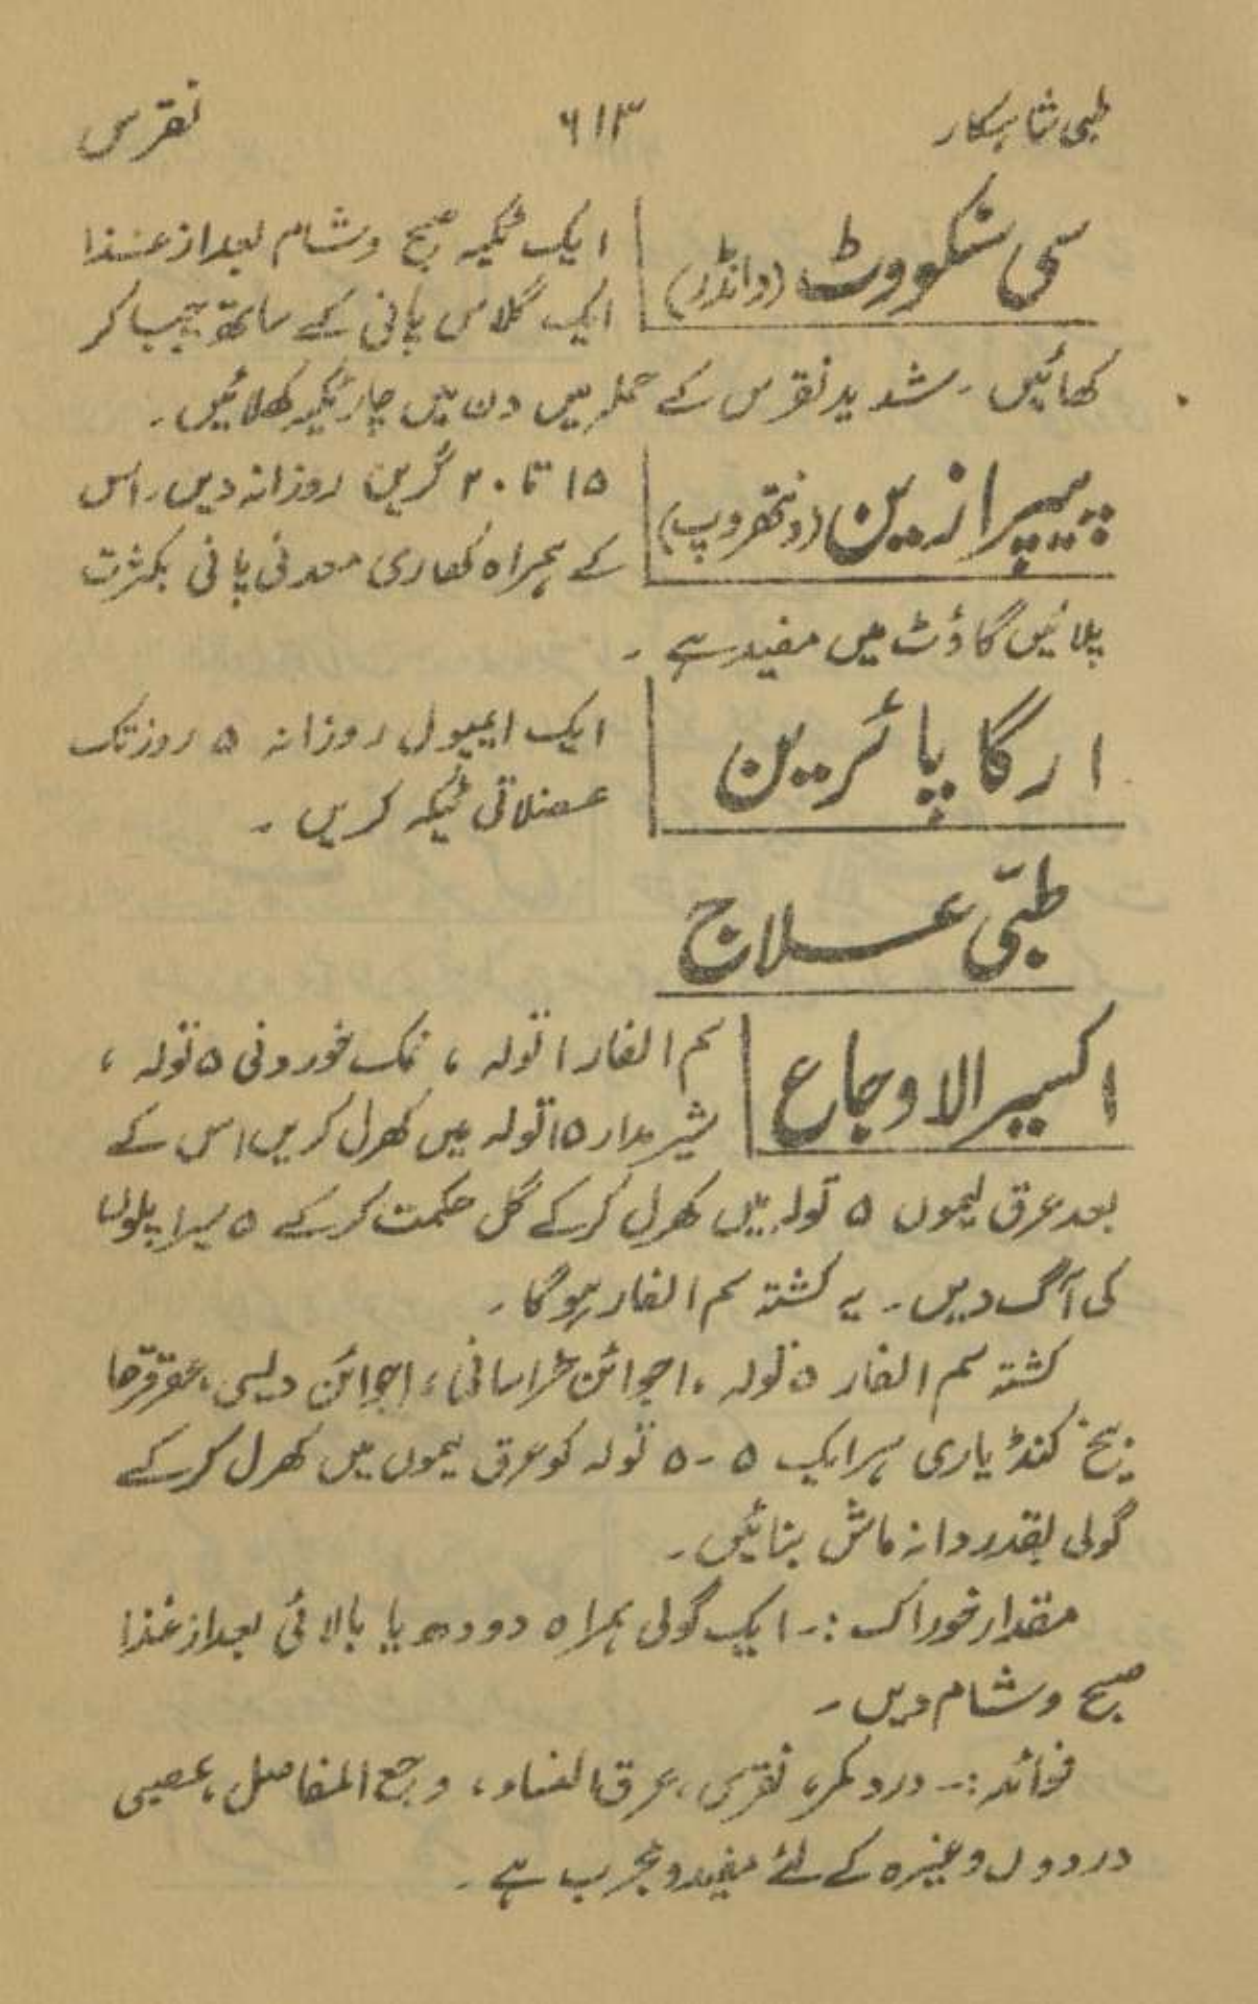 طبی شاہکار ۶۱۳ نقرس
سی شکووٹ (وانڈر) ایک ٹکیہ صبح و شام بعد از غذا
ایک گلاس پانی کے ساتھ چبا کر
کھائیں ۔ شدید نقرس کے حملہ میں دن میں چار ٹکیہ کھلائیں ۔
پیپرازین (ونتھروپ) ۱۵ تا ۲۰ گرین روزانہ دیں ۔ اس
کے ہمراہ کھاری معدنی پانی بکثرت
پلائیں گاؤٹ میں مفید ہے ۔
ارگا پائرین ایک ایمپول روزانہ ۵ روز تک
عضلاتی ٹیکہ کریں ۔
طبّی علاج
اکسیر الاوجاع سم الفار ۱ تولہ ، نمک خوردنی ۵ تولہ ،
شیر مدار ۱۵ تولہ میں کھرل کریں اس کے
بعد عرق لیموں ۵ تولہ میں کھرل کرکے گل حکمت کرکے ۵ سیر اپلوں
کی آگ دیں ۔ یہ کشتہ سم الفار ہوگا ۔
کشتہ سم الفار ۵ تولہ ، اجوائن خراسانی ، اجوائن دیسی ، عقرقرحا
بیخ کنڈیاری ہر ایک ۵ - ۵ تولہ کو عرق لیموں میں کھرل کرکے
گولی بقدر دانہ ماش بنائیں ۔
مقدار خوراک :۔ ایک گولی ہمراہ دودھ یا بالائی بعد از غذا
صبح و شام دیں ۔
فوائد :۔ درد کمر ، نقرس ، عرق النساء ، وجع المفاصل ، عصبی
دردوں وغیرہ کے لئے مفید و مجرب ہے ۔